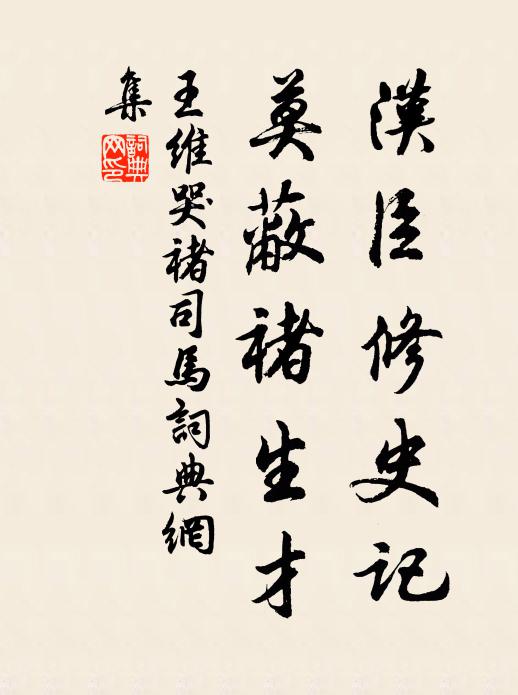 漢臣修史記
莫蔽褚生才
王維哭褚司馬詞典網
集
詞典網印